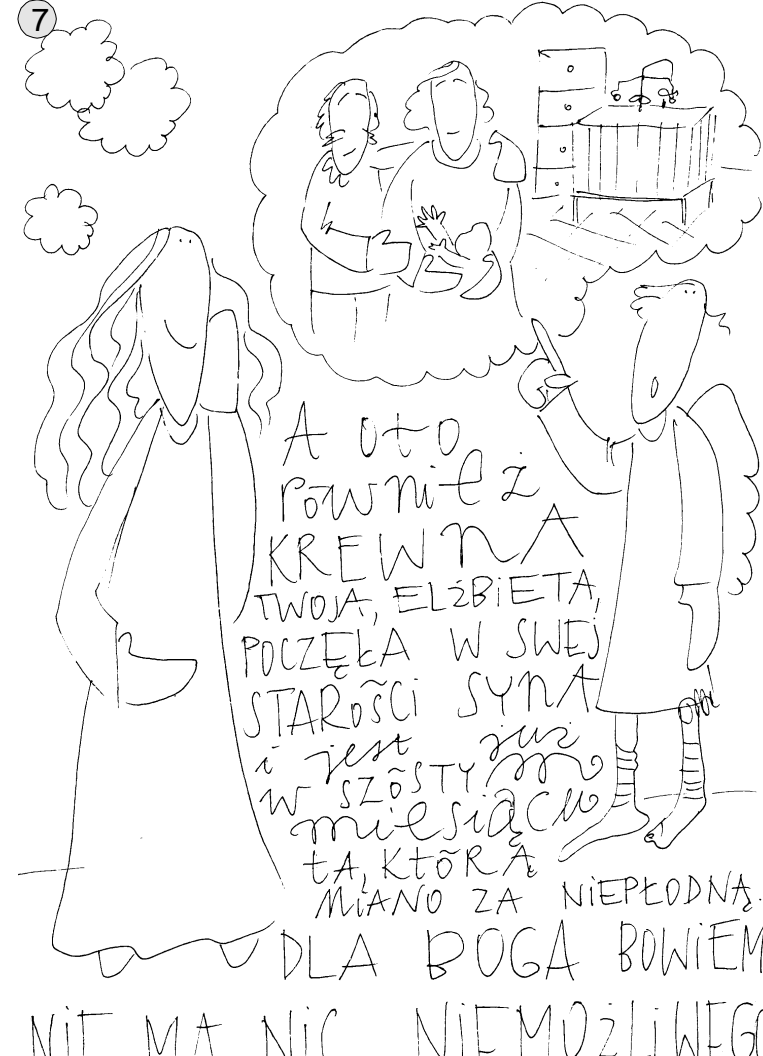 7
A oto
również
KREWNA
TWOJA, ELŻBIETA,
POCZĘŁA W SWEJ
STAROŚCI SYNA
i jest już
w SZÓSTYm
miesiącu
ta, KTÓRĄ
MiANO ZA NiEPŁODNĄ.
DLA BOGA BOWiEM
NiE MA NiC NiEMOŻLiWEGO